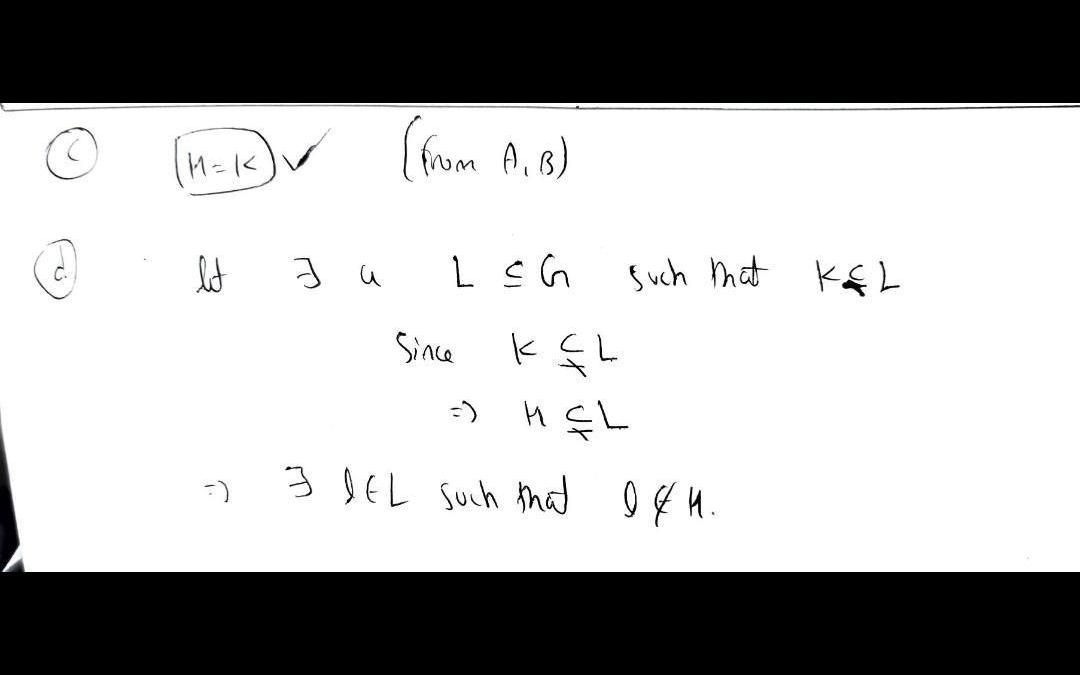 (c) H=K ✓ (from A, B)
(d) let ∃ a L ⊆ G such that K ⊊ L
Since K ⊊ L
=) H ⊊ L
=) ∃ l ∈ L such that l ∉ H.